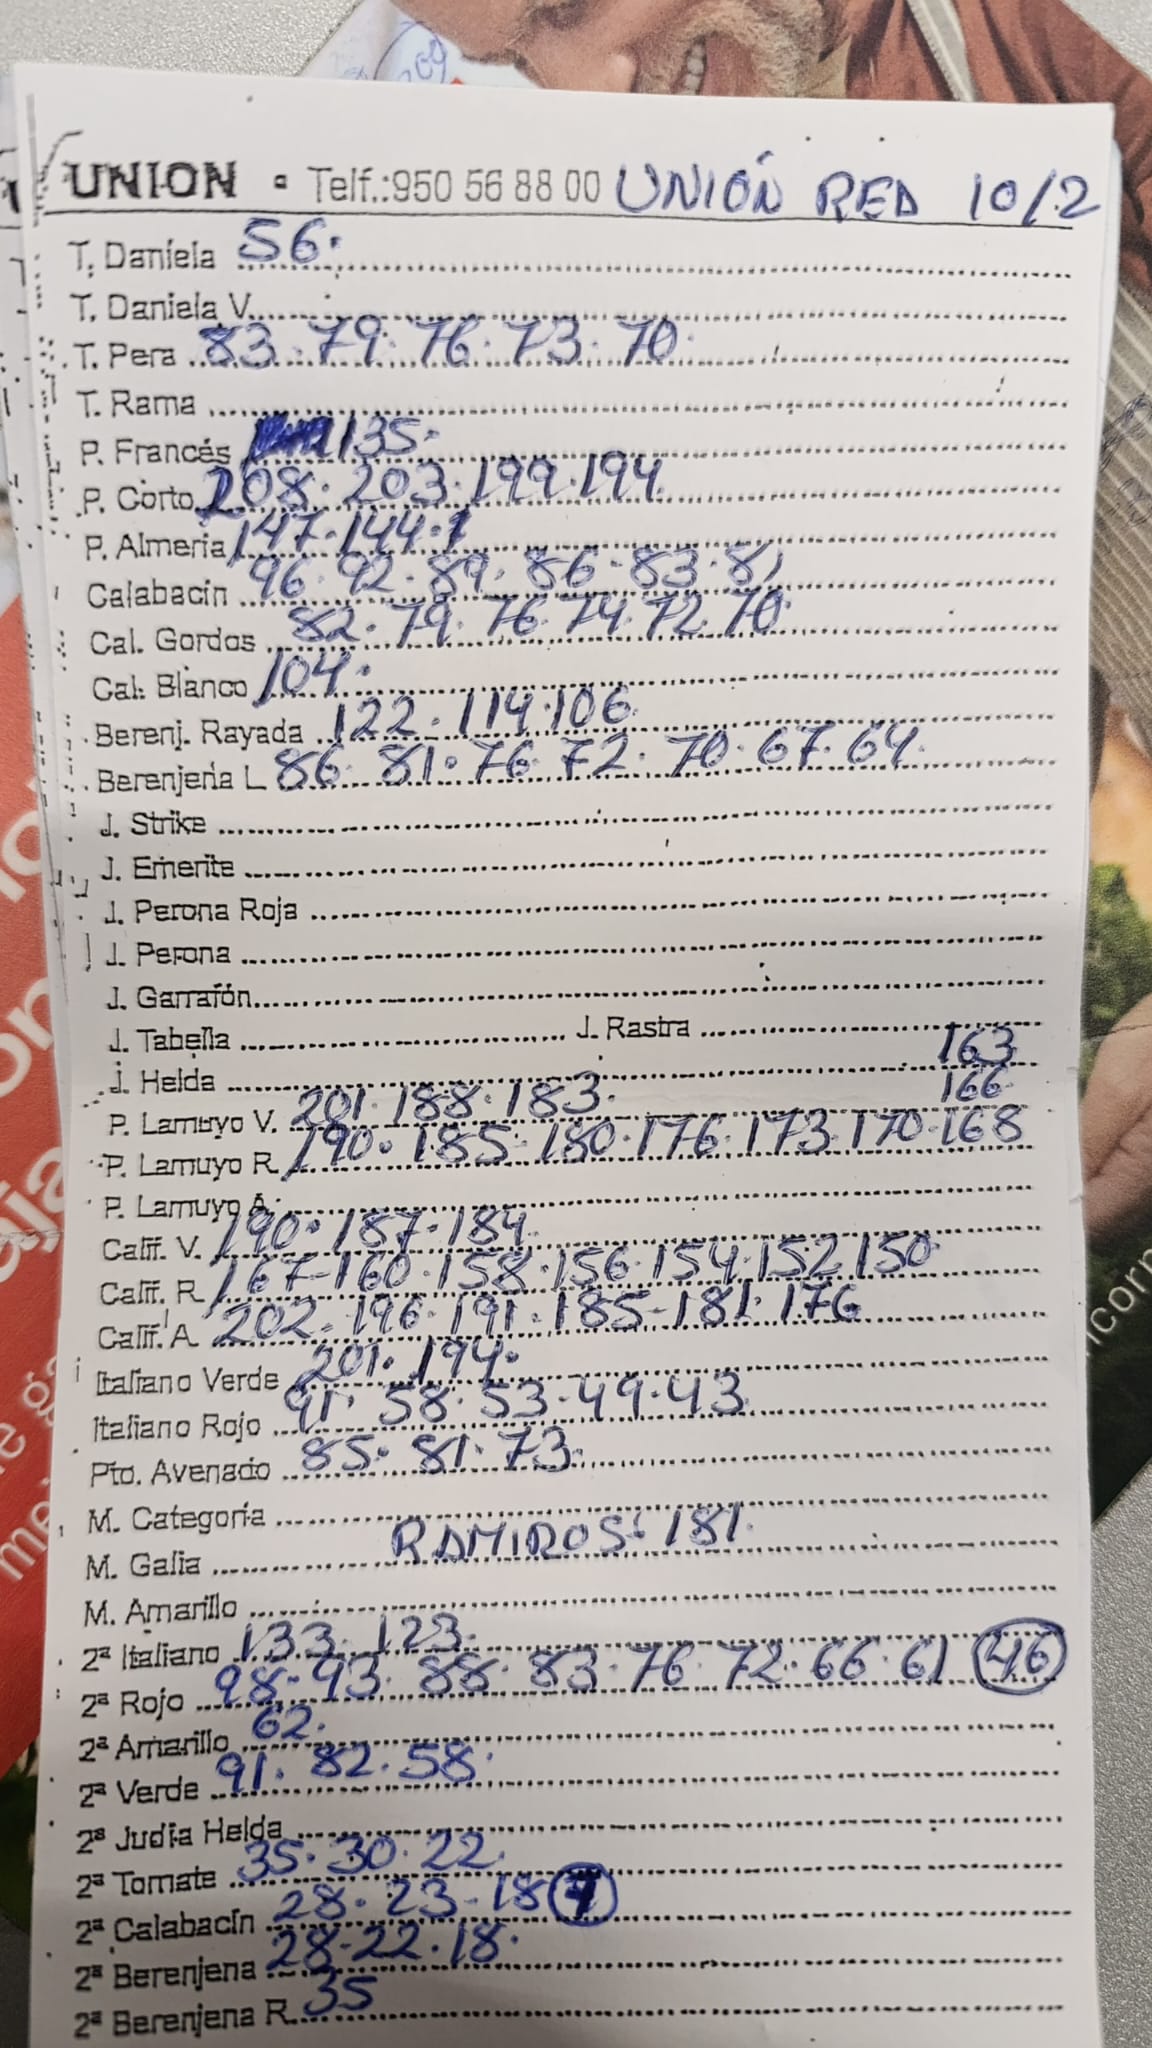 UNION • Telf.:950 56 88 00 UNIÓN RED 10/2
T. Daniela 56.
T. Daniela V.
T. Pera 83. 79. 76. 73. 70.
T. Rama
P. Francés 135.
P. Corto 208. 203. 199. 194
P. Almería 147. 144.
Calabacín 96. 92. 89. 86. 83. 81
Cal. Gordos 82. 79. 76. 74. 72. 70.
Cal. Blanco 104.
Berenj. Rayada 122. 114. 106
Berenjena L 86 81. 76. 72. 70. 67. 64.
J. Strike
J. Emerite
J. Perona Roja
J. Perona
J. Garrafón
J. Tabella J. Rastra
163
J. Helda
166
P. Lamuyo V. 201. 188. 183.
P. Lamuyo R. 190. 185. 180. 176. 173. 170. 168
P. Lamuyo A.
Calif. V. 190. 187. 184
Calif. R. 167-160. 158. 156. 154. 152. 150.
Calif. A. 202. 196. 191. 185-181. 176
Italiano Verde 201. 194.
Italiano Rojo 91. 58. 53-49.43
Pto. Avenado 85. 81. 73.
M. Categoría
RAMIROS: 181.
M. Galia
M. Amarillo
2ª Italiano 133. 123.
2ª Rojo 98-93. 88. 83-76. 72. 66. 61 46
2ª Amarillo 62.
2ª Verde 91. 82. 58.
2ª Judía Helda
2ª Tomate 35. 30. 22.
2ª Calabacín 28. 23-18
2ª Berenjena 28-22. 18.
2ª Berenjena R. 35